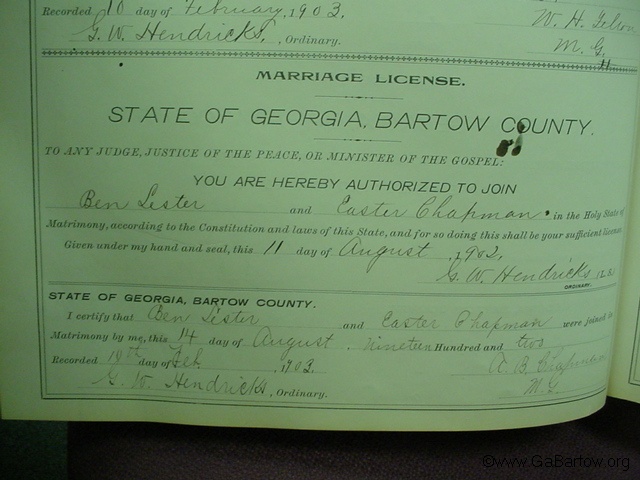 Recorded 10 day of February, 1903.
W. H.
G. W. Hendricks, Ordinary.
M. G.
11
MARRIAGE LICENSE.
STATE OF GEORGIA, BARTOW COUNTY.
TO ANY JUDGE, JUSTICE OF THE PEACE, OR MINISTER OF THE GOSPEL:
YOU ARE HEREBY AUTHORIZED TO JOIN
Ben Lester and Easter Chapman in the Holy State of
Matrimony, according to the Constitution and laws of this State, and for so doing this shall be your sufficient license.
Given under my hand and seal, this 11 day of August, 1902,
G. W. Hendricks (L.S.)
ORDINARY.
STATE OF GEORGIA, BARTOW COUNTY.
I certify that Ben Lester and Easter Chapman were joined in
Matrimony by me, this 14 day of August. Nineteen Hundred and two
Recorded 10th day of Feb, 1903. A. B. Chapman
G. W. Hendricks, Ordinary. M. G.
©www.GaBartow.org